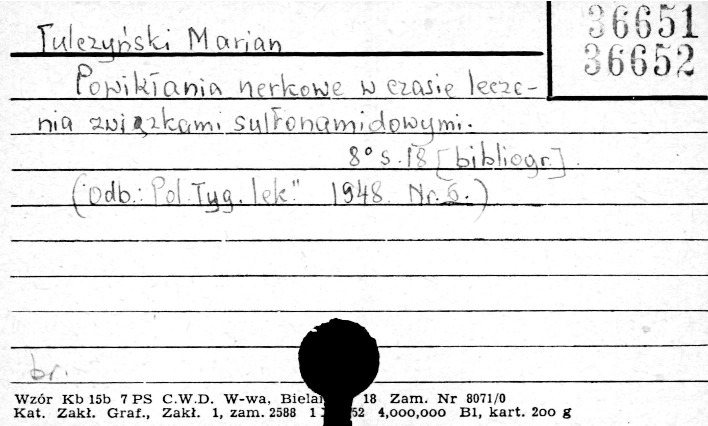 36651
36652
Tulczyński Marian
Powikłania nerkowe w czasie lecze-
nia związkami sulfonamidowymi.
8° s. 18 [bibliogr.].
(Odb.: "Pol. Tyg. lek." 1948. Nr. 6.)
br.
Wzór Kb 15b 7 PS C.W.D. W-wa, 18 Zam. Nr 8071/0
Kat. Zakł. Graf., Zakł. 1, zam. 2588 52 4,000,000 B1, kart. 200 g